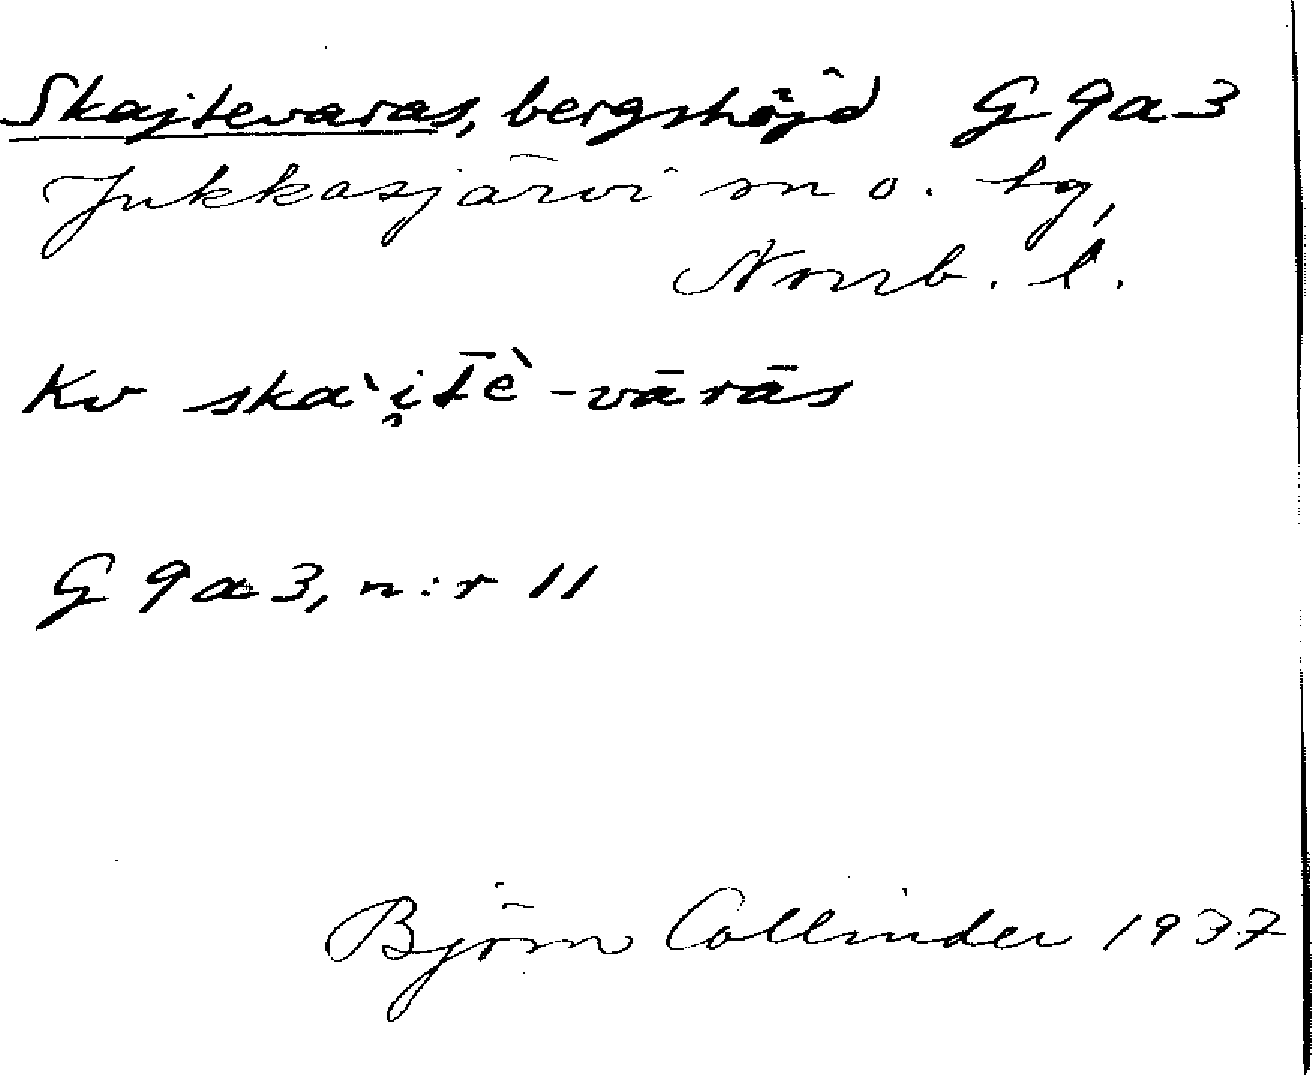 Skajtevaras, bergshöjd G 9a3
Jukkasjärvi sn o. tg,
Norrb. l.
Kv skaˋi̯t̄ὲ -vārās
G 9a3, n:r 11
Björn Collinder 1937